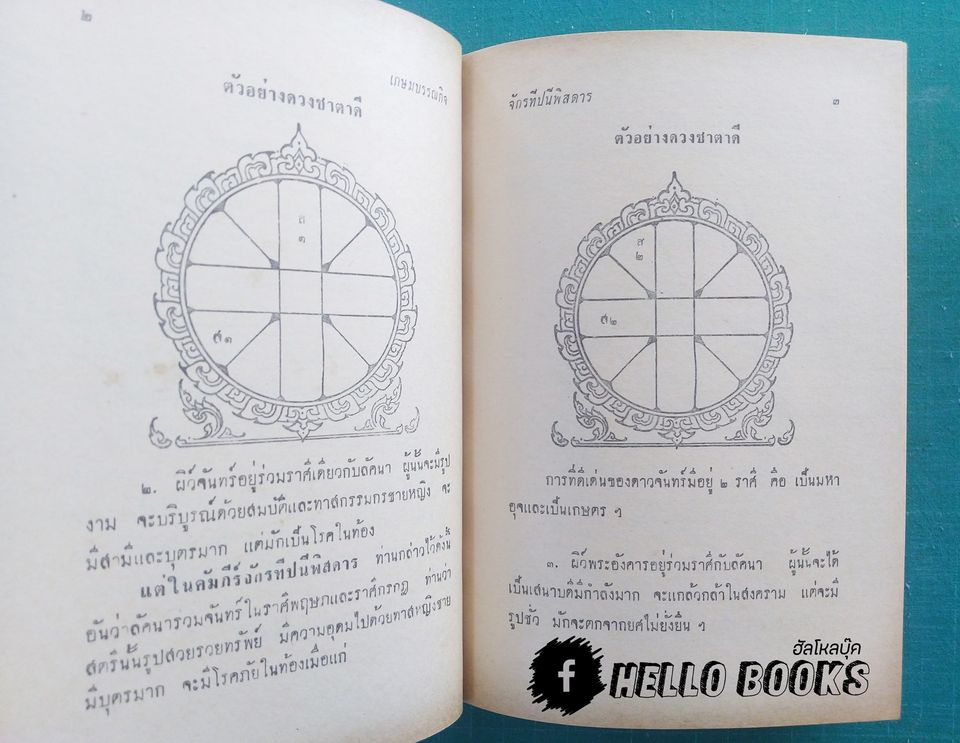 ๒
เกษมบรรณกิจ
ตัวอย่างดวงชาตาดี
ส
๑
ส๑
๒. ผิว์จันทร์อยู่ร่วมราศีเดียวกับลัคนา ผู้นั้นจะมีรูป
งาม จะบริบูรณ์ด้วยสมบัติและทาสกรรมกรชายหญิง จะ
มีสามีและบุตรมาก แต่มักเป็นโรคในท้อง
แต่ในคัมภีร์จักรทีปนีพิสดาร ท่านกล่าวไว้ดังนี้
อันว่าลัคนารวมจันทร์ในราศีพฤษภและราศีกรกฎ ท่านว่า
สตรีนั้นรูปสวยรวยทรัพย์ มีความอุดมไปด้วยทาสหญิงชาย
มีบุตรมาก จะมีโรคภัยในท้องเมื่อแก่
จักรทีปนีพิสดาร
๓
ตัวอย่างดวงชาตาดี
ส
๒
ส๒
การที่ดีเด่นของดาวจันทร์มีอยู่ ๒ ราศี คือ เป็นมหา
อุจและเป็นเกษตร ๆ
๓. ผิว์พระอังคารอยู่ร่วมราศีกับลัคนา ผู้นั้นจะได้
เป็นเสนาบดีมีกำลังมาก จะแกล้วกล้าในสงคราม แต่จะมี
รูปชั่ว มักจะตกจากยศไม่ยั่งยืน ๆ
ฮัลโหลบุ๊ค
f HELLO BOOKS